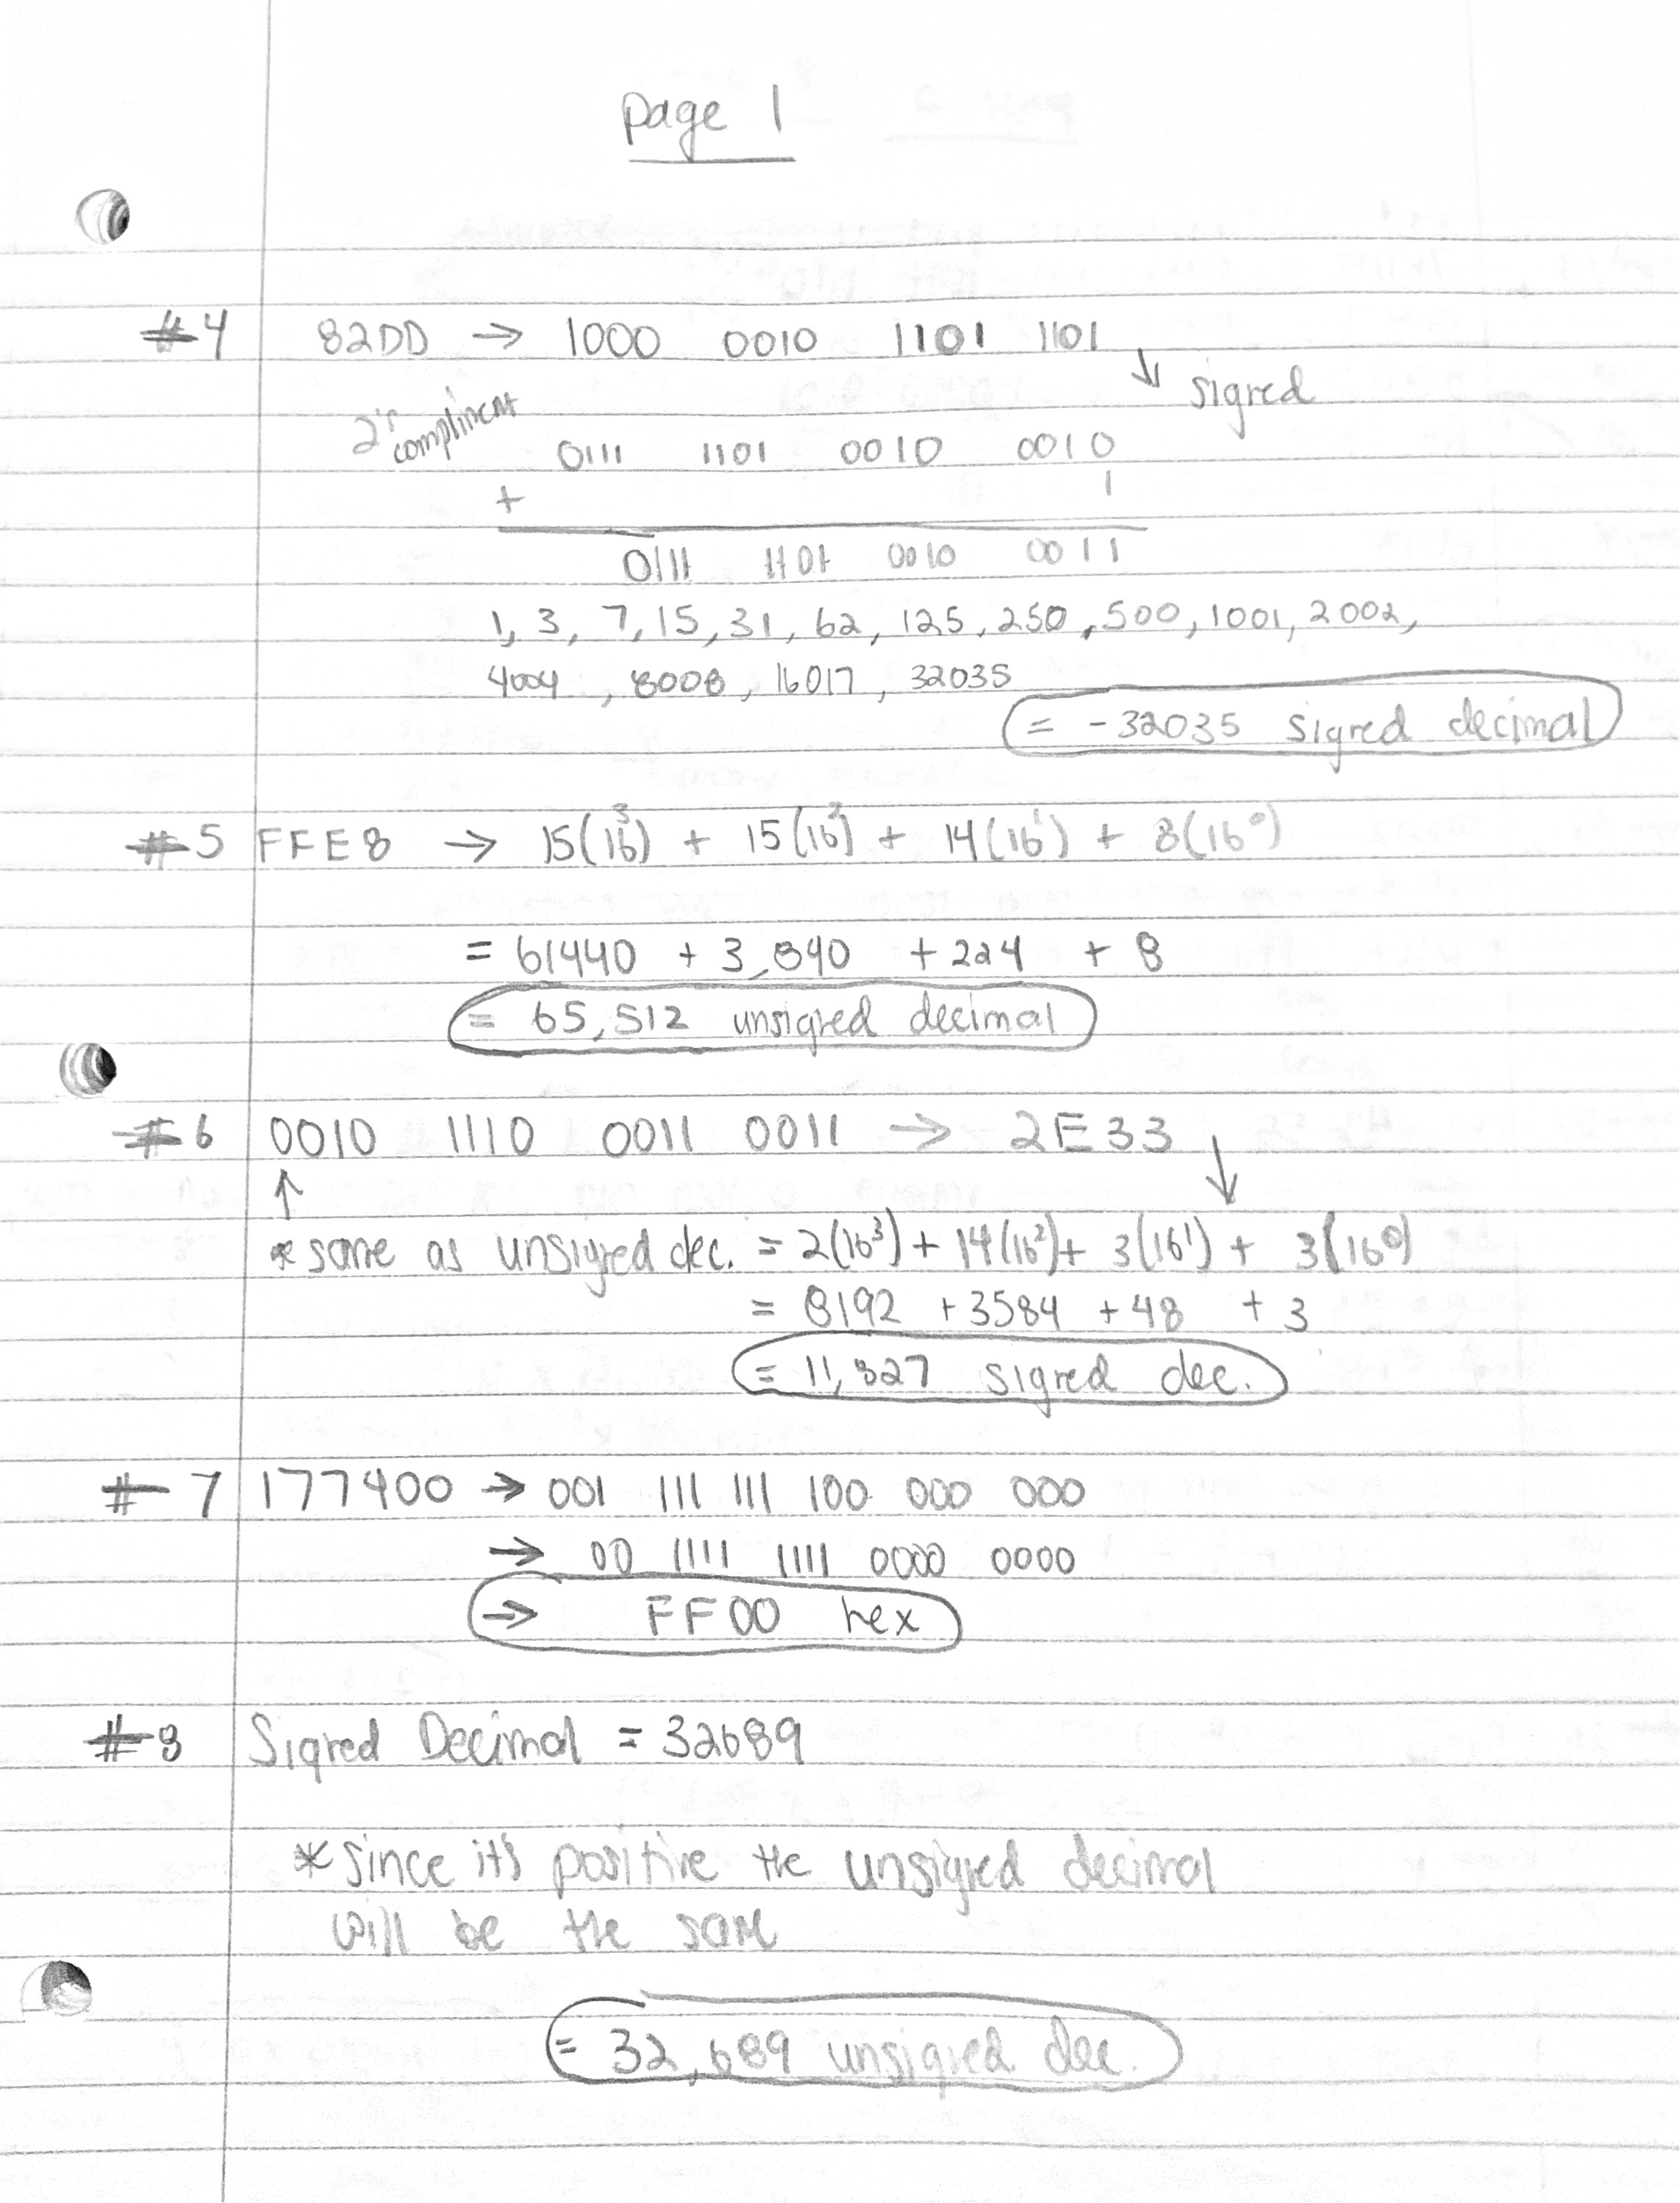 page 1
#4 82DD → 1000 0010 1101 1101
↓ signed
2's compliment
0111 1101 0010 0010
+ 1
0111 1101 0010 0011
1, 3, 7, 15, 31, 62, 125, 250, 500, 1001, 2002,
4004, 8008, 16017, 32035
= -32035 signed decimal
#5 FFE8 → 15(16³) + 15(16²) + 14(16¹) + 8(16⁰)
= 61440 + 3,840 + 224 + 8
= 65,512 unsigned decimal
#6 0010 1110 0011 0011 → 2E33 ↓
↑
* same as unsigned dec. = 2(16³) + 14(16²) + 3(16¹) + 3(16⁰)
= 8192 + 3584 + 48 + 3
= 11,827 signed dec.
#7 177400 → 001 111 111 100 000 000
→ 00 1111 1111 0000 0000
→ FF00 hex
#8 Signed Decimal = 32689
* since it's positive the unsigned decimal
will be the same
= 32,689 unsigned dec.